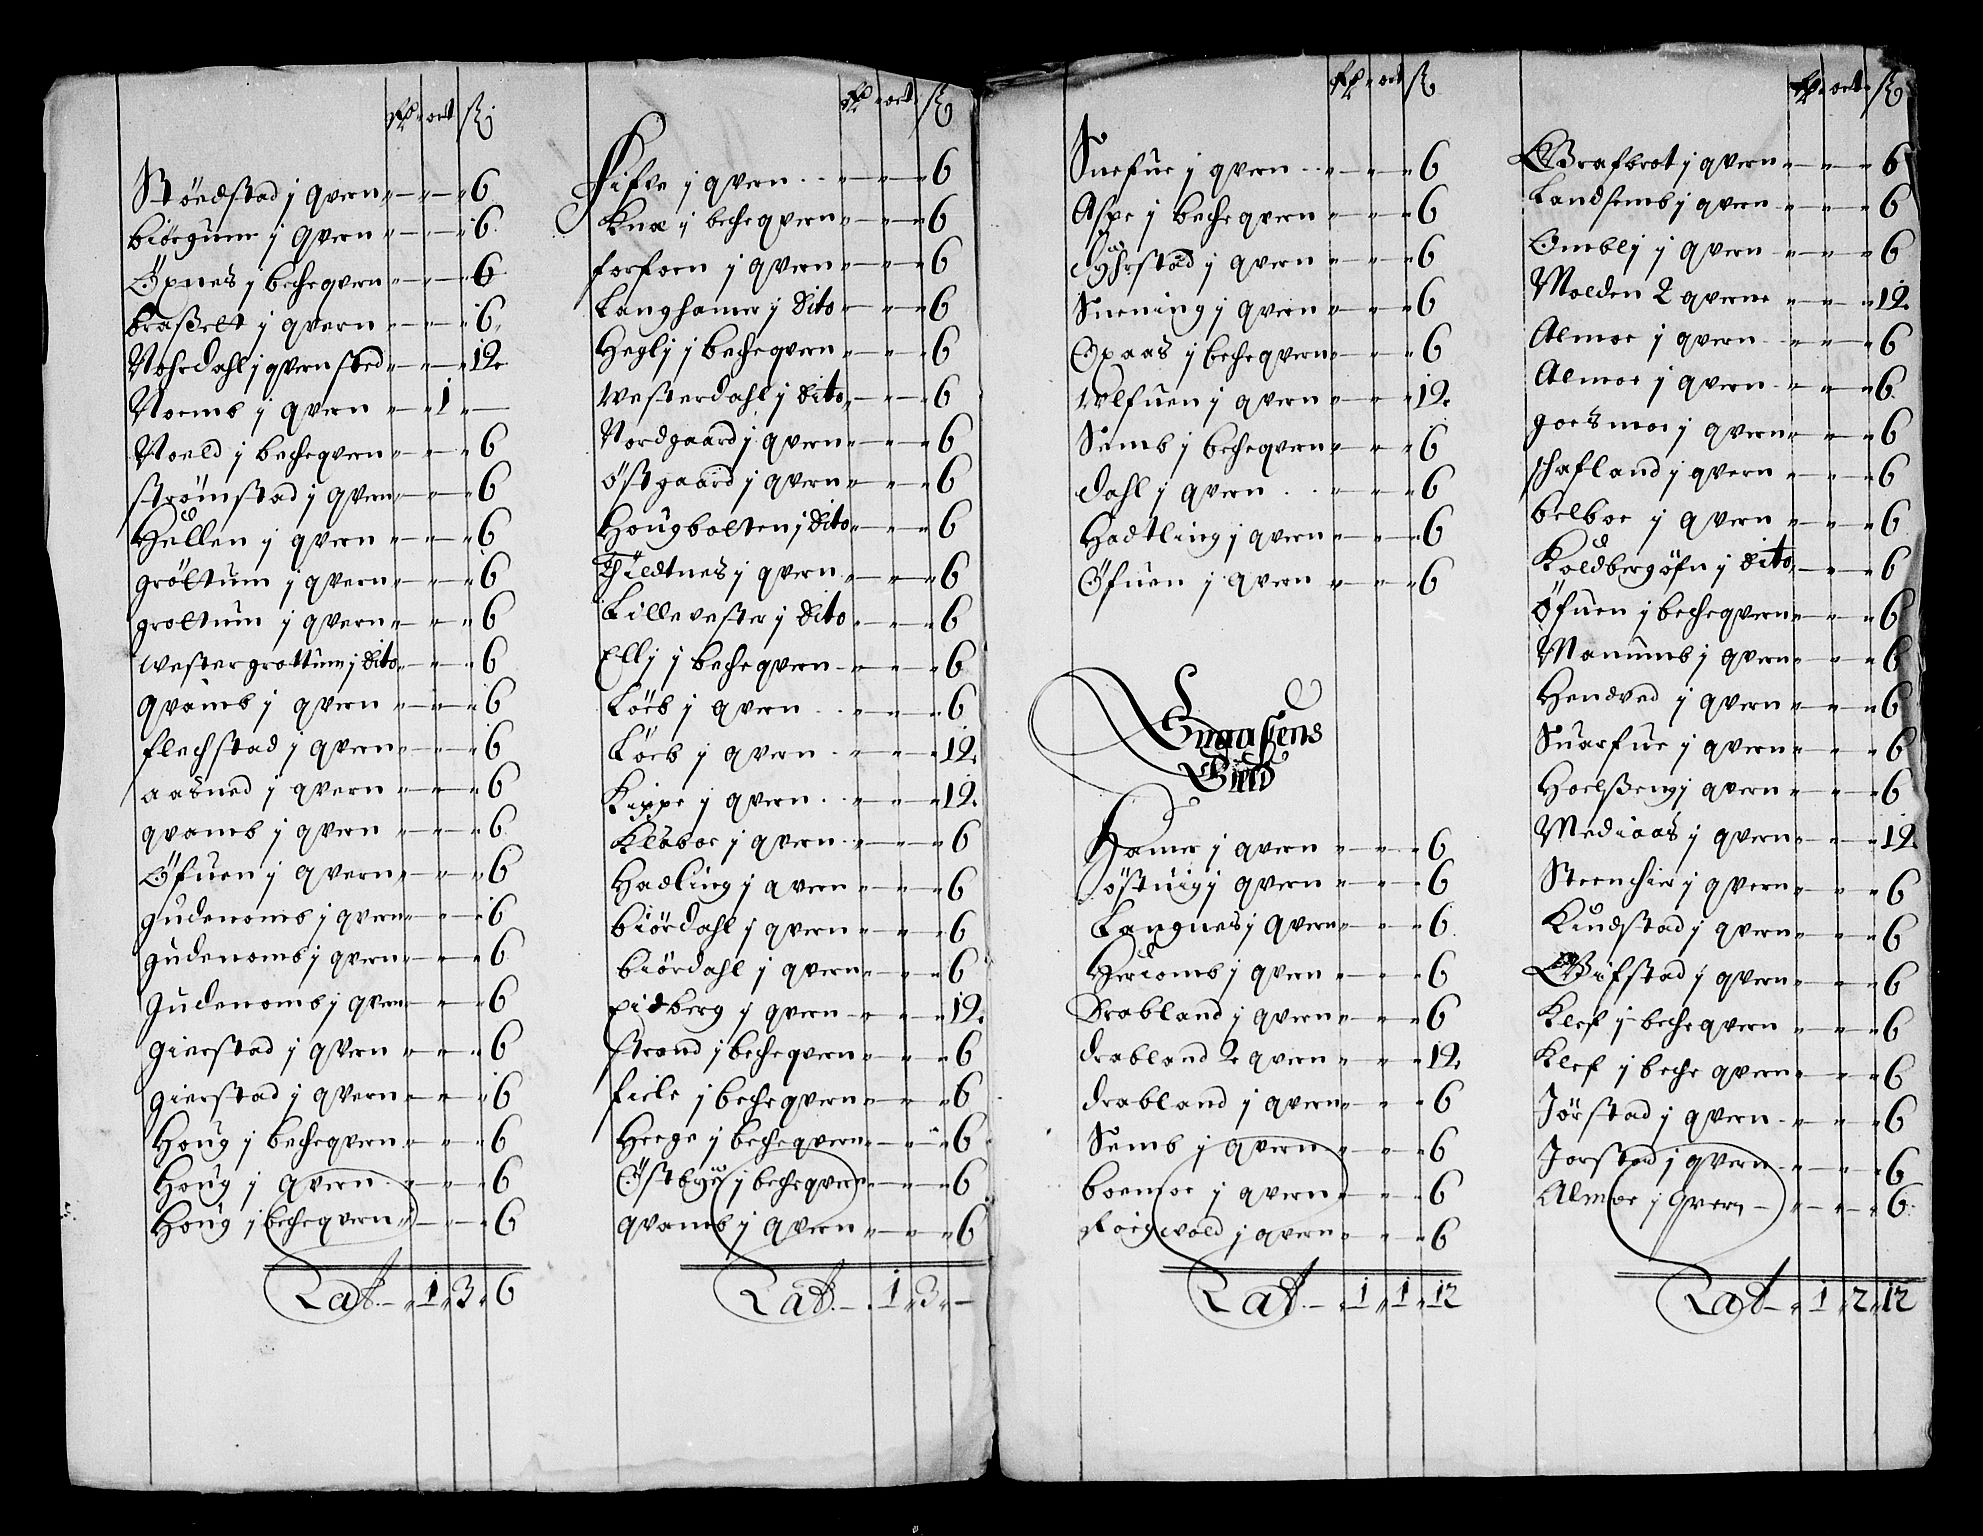 Rd ort ß
Stördstad j qvern " — " — " 6
biörgum j qvern " — " — " 6
Öxnes j becheqvern " — " — " 6
braßelt j qvern " — " — " 6
Nohrdahl j qvernsted " — " — " 12
Noemb j qvern " — " 1 " —
Noeld j becheqvern " — " — " 6
strömstad j qvern " — " — " 6
Hellen j qvern " — " — " 6
gröltum j qvern " — " — " 6
groltum j qvern " — " — " 6
westergrottum j dito " — " — " 6
qvamb j qvern " — " — " 6
flechstad j qvern " — " — " 6
aasned j qvern " — " — " 6
qvamb j qvern " — " — " 6
Öfuen j qvern " — " — " 6
gudenomb j qvern " — " — " 6
gudenomb j qvern " — " — " 6
gudenomb j qvern " — " — " 6
gierstad j qvern " — " — " 6
gierstad j qvern " — " — " 6
Houg j becheqvern " — " — " 6
Houg j qvern " — " — " 6
Houg j becheqvern " — " — " 6
Lat. — " 1 " 3 " 6
Rd ort ß
Fifve j qvern " — " — " 6
Knæ j becheqvern " — " — " 6
forforn j qvern " — " — " 6
Langhamer j dito " — " — " 6
Heglj j becheqvern " — " — " 6
westerdahl j dito " — " — " 6
Nordgaard j qvern " — " — " 6
östgaard j qvern " — " — " 6
Hougbolten j dito " — " — " 6
Tildtnes j qvern " — " — " 6
Lillevester j dito " — " — " 6
Ellj j becheqvern " — " — " 6
Löeb j qvern " — " — " 6
Löeb j qvern " — " — " 12
Kippe j qvern " — " — " 12
Klæboe j qvern " — " — " 6
Hadling j qvern " — " — " 6
biördahl j qvern " — " — " 6
biördahl j qvern " — " — " 6
Eidberg j qvern " — " — " 12
strand j becheqvern " — " — " 6
fiele j becheqvern " — " — " 6
Heege j becheqvern " — " — " 6
Östbye j becheqvern " — " — " 6
qvamb j qvern " — " — " 6
Lat. — " 1 " 3 " —
Rd ort ß
Snefue j qvern " — " — " 6
Aspe j becheqvern " — " — " 6
dyhrstad j qvern " — " — " 6
Snening j qvern " — " — " 6
Oxaas j becheqvern " — " — " 6
Wolfuen j qvern " — " — " 12
Semb j becheqvern " — " — " 6
dahl j qvern " — " — " 6
Hadtling j qvern " — " — " 6
Öfuen j qvern " — " — " 6
Snaasens
Gield
Hamer j qvern " — " — " 6
östuig j qvern " — " — " 6
Langnes j qvern " — " — " 6
Heriomb j qvern " — " — " 6
Drabland j qvern " — " — " 6
drabland 2 qvern " — " — " 12
drabland j qvern " — " — " 6
Semb j qvern " — " — " 6
boemoe j qvern " — " — " 6
Roigwold j qvern " — " — " 6
Lat. — " 1 " 1 " 12
Rd ort ß
Grafbrot j qvern " — " — " 6
Landsemb j qvern " — " — " 6
Omblj j qvern " — " — " 6
Molden 2 qverne " — " — " 12
Almoe j qvern " — " — " 6
Almoe j qvern " — " — " 6
goesmoe j qvern " — " — " 6
schafland j qvern " — " — " 6
belboe j qvern " — " — " 6
Koldbergöfn j dito " — " — " 6
Öfuen j becheqvern " — " — " 6
Manumb j qvern " — " — " 6
Hendved j qvern " — " — " 6
Suarfue j qvern " — " — " 6
Hoelßeng j qvern " — " — " 6
Mediaas j qvern " — " — " 12
Steenchier j qvern " — " — " 6
Kuudstad j qvern " — " — " 6
Gifstad j qvern " — " — " 6
Klef j becheqvern " — " — " 6
Klef j beche qvern " — " — " 6
Jörstad j qvern " — " — " 6
Jorstad j qvern " — " — " 6
Almoe j qvern " — " — " 6
Lat — " 1 " 2 " 12